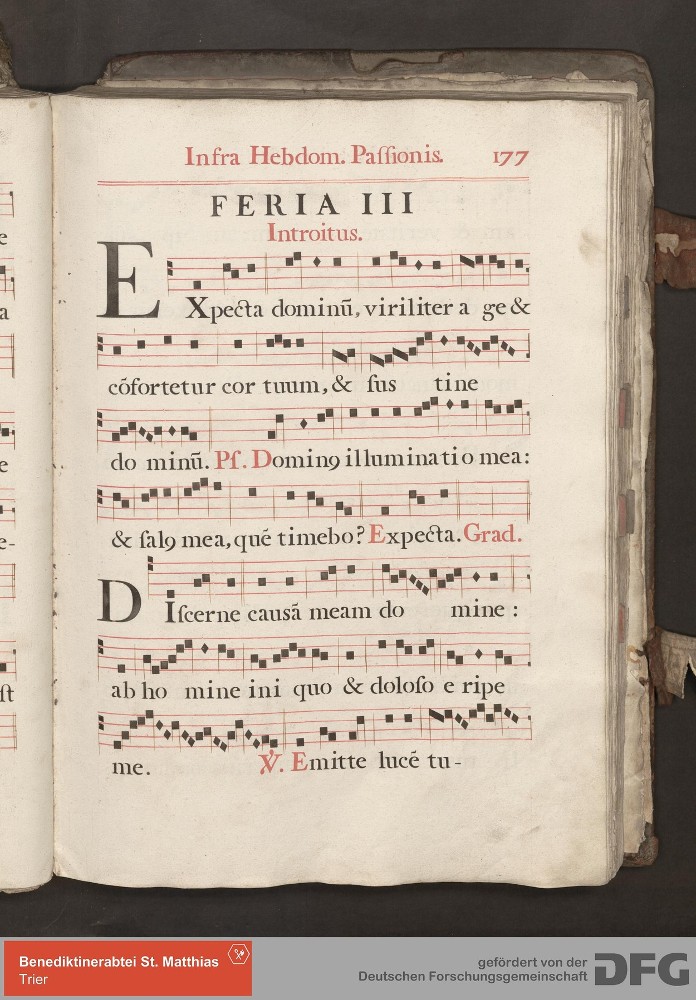 Infra Hebdom. Paſſionis. 177
FERIA III
Introitus.
EXpecta dominū, viriliter a ge &
cōfortetur cor tuum, & ſus tine
do minū. Pſ. Dominꝯ illuminatio mea:
& ſalꝯ mea, quē timebo? Expecta. Grad.
DIſcerne causā meam do mine :
ab ho mine ini quo & doloſo e ripe
me. ℣. Emitte lucē tu-
e
a
e
e-
ſt
Benediktinerabtei St. Matthias
Trier
gefördert von der
Deutschen Forschungsgemeinschaft
DFG